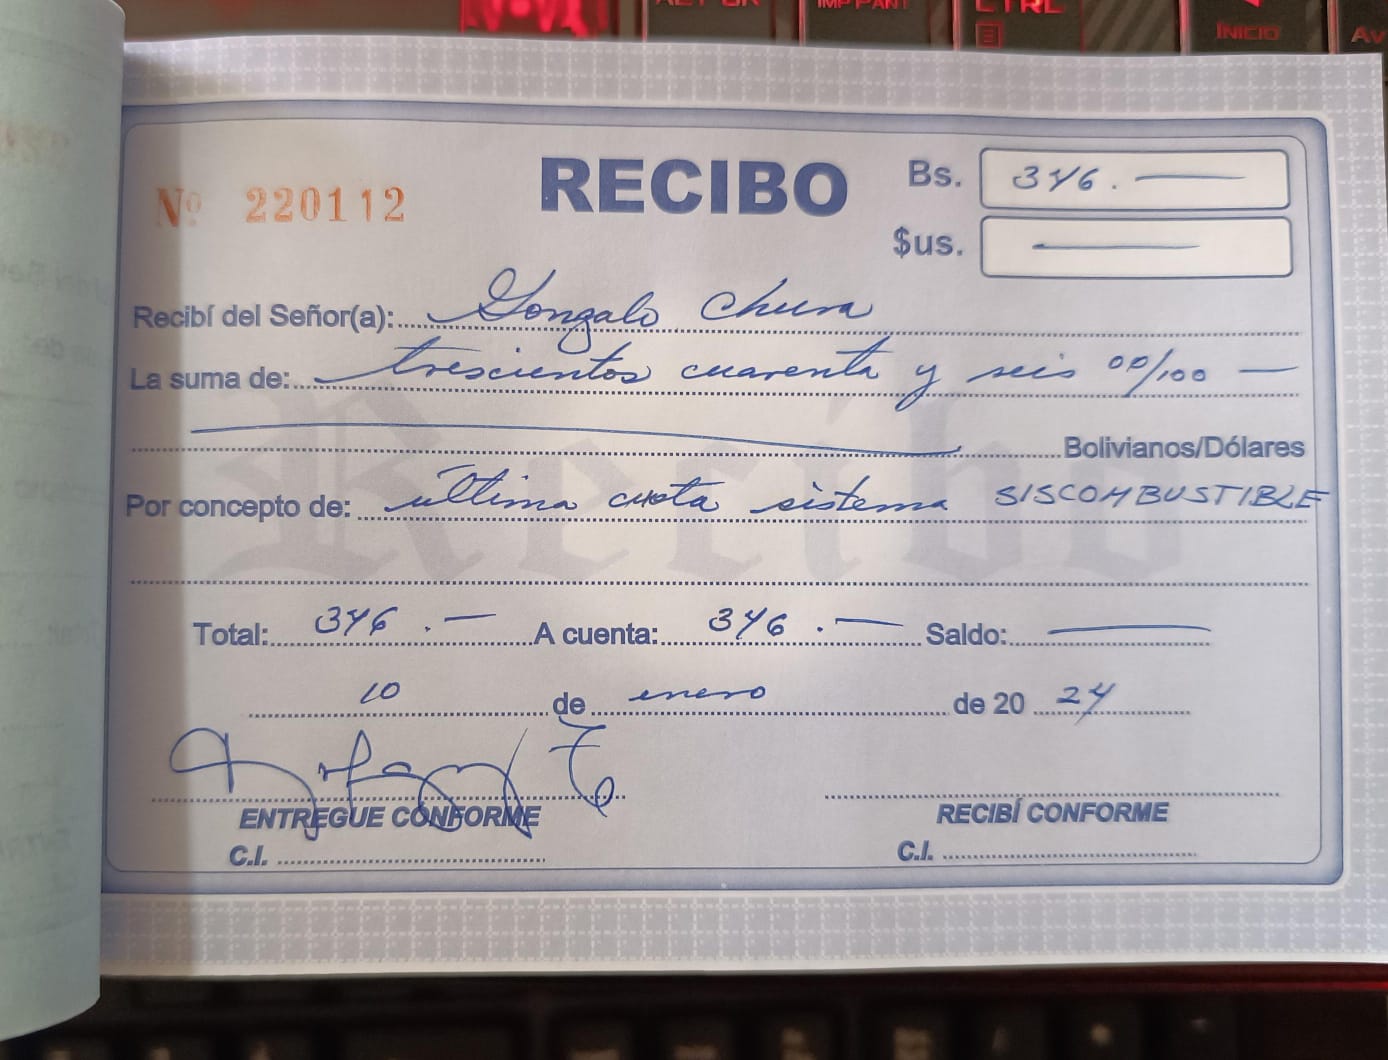 IMP PANT
CTRL
INICIO
Av
Nº 220112
RECIBO
Bs. 346.
$us.
Recibí del Señor(a): Gonzalo Chura
La suma de: trescientos cuarenta y seis 00/100
Bolivianos/Dólares
Por concepto de: última cuota sistema SISCOMBUSTIBLE
Recibo
Total: 346. A cuenta: 346. Saldo:
10 de enero de 20 24
ENTREGUE CONFORME
RECIBÍ CONFORME
C.I.
C.I.